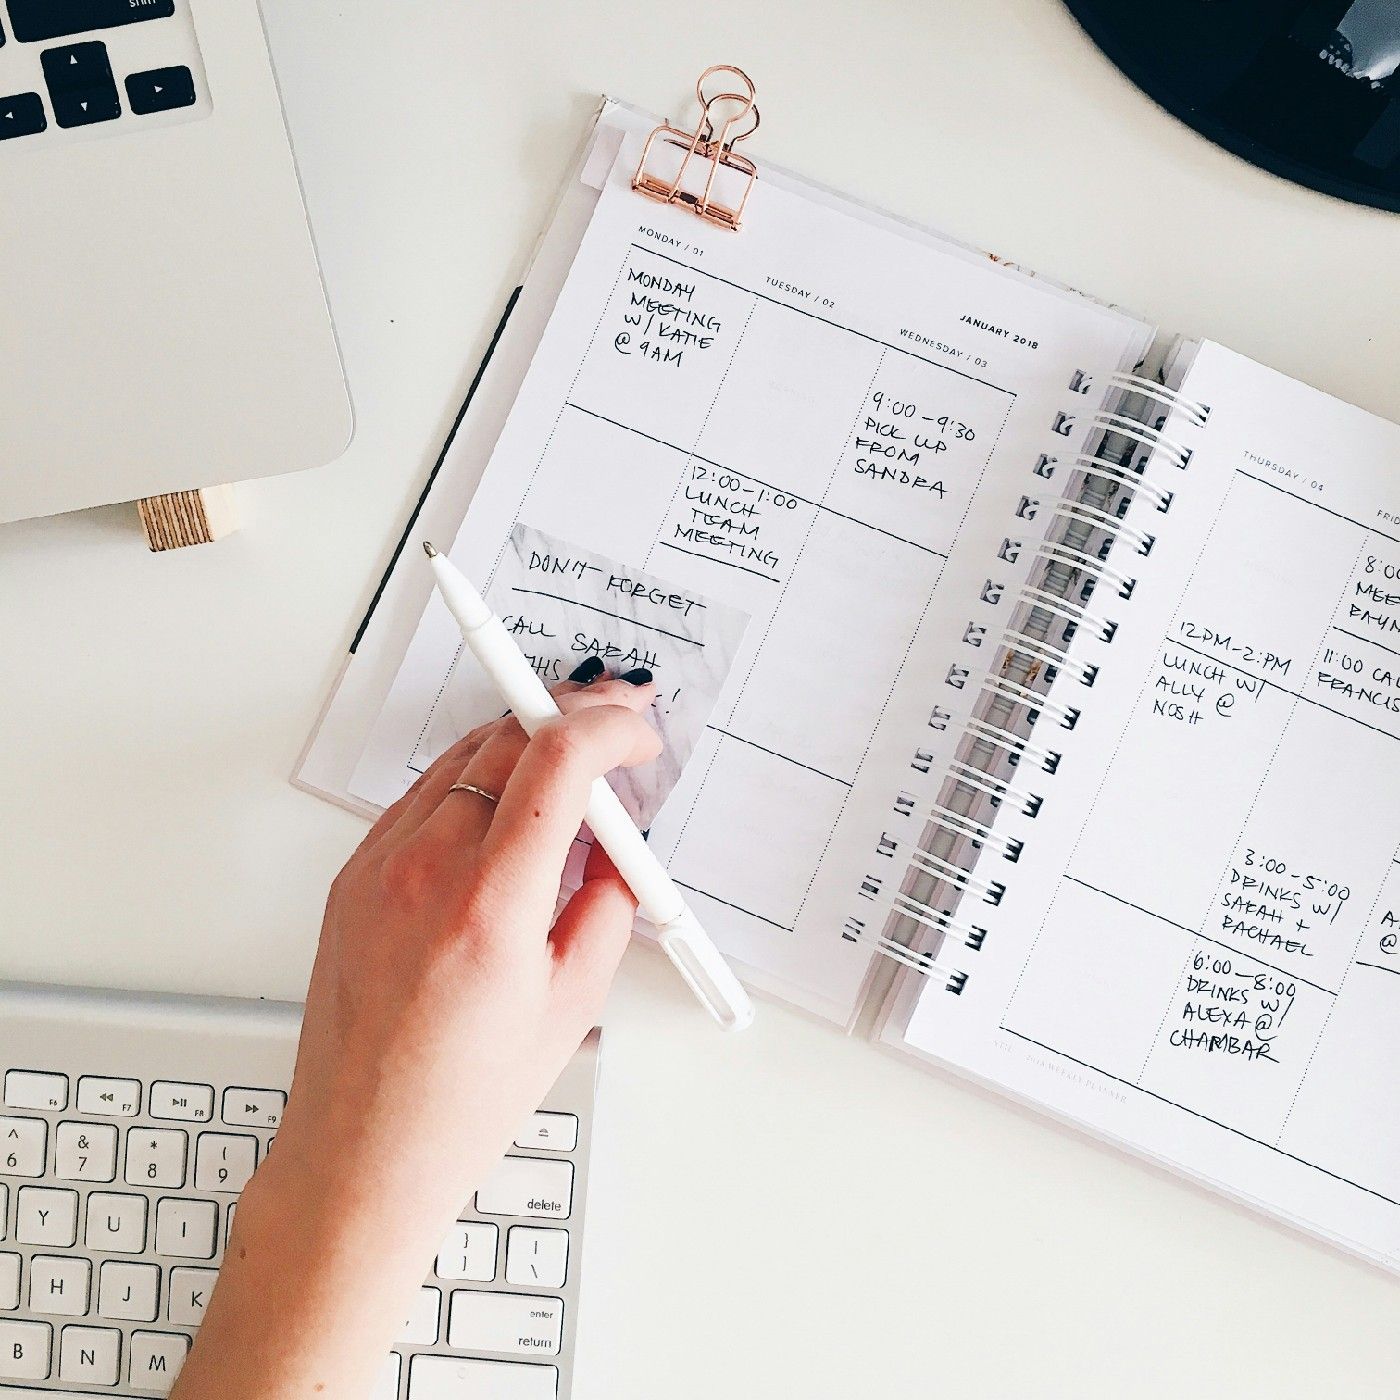 JANUARY 2018
MONDAY / 01
MONDAY
MEETING
W/ KATIE
@ 9AM
TUESDAY / 02
12:00-1:00
LUNCH
TEAM
MEETING
WEDNESDAY / 03
9:00-9:30
PICK UP
FROM
SANDRA
DON'T FORGET
CALL SARAH
THIS
!
THURSDAY / 04
12PM-2:PM
LUNCH W/
ALLY @
NOSH
3:00-5:00
DRINKS W/
SARAH +
RACHAEL
6:00-8:00
DRINKS W/
ALEXA @
CHAMBAR
11:00
2018 WEEKLY PLANNER
shift
F6
F7
F8
F9
^
6
&
7
*
8
(
9
delete
Y
U
I
}
]
|
\
H
J
K
enter
return
B
N
M